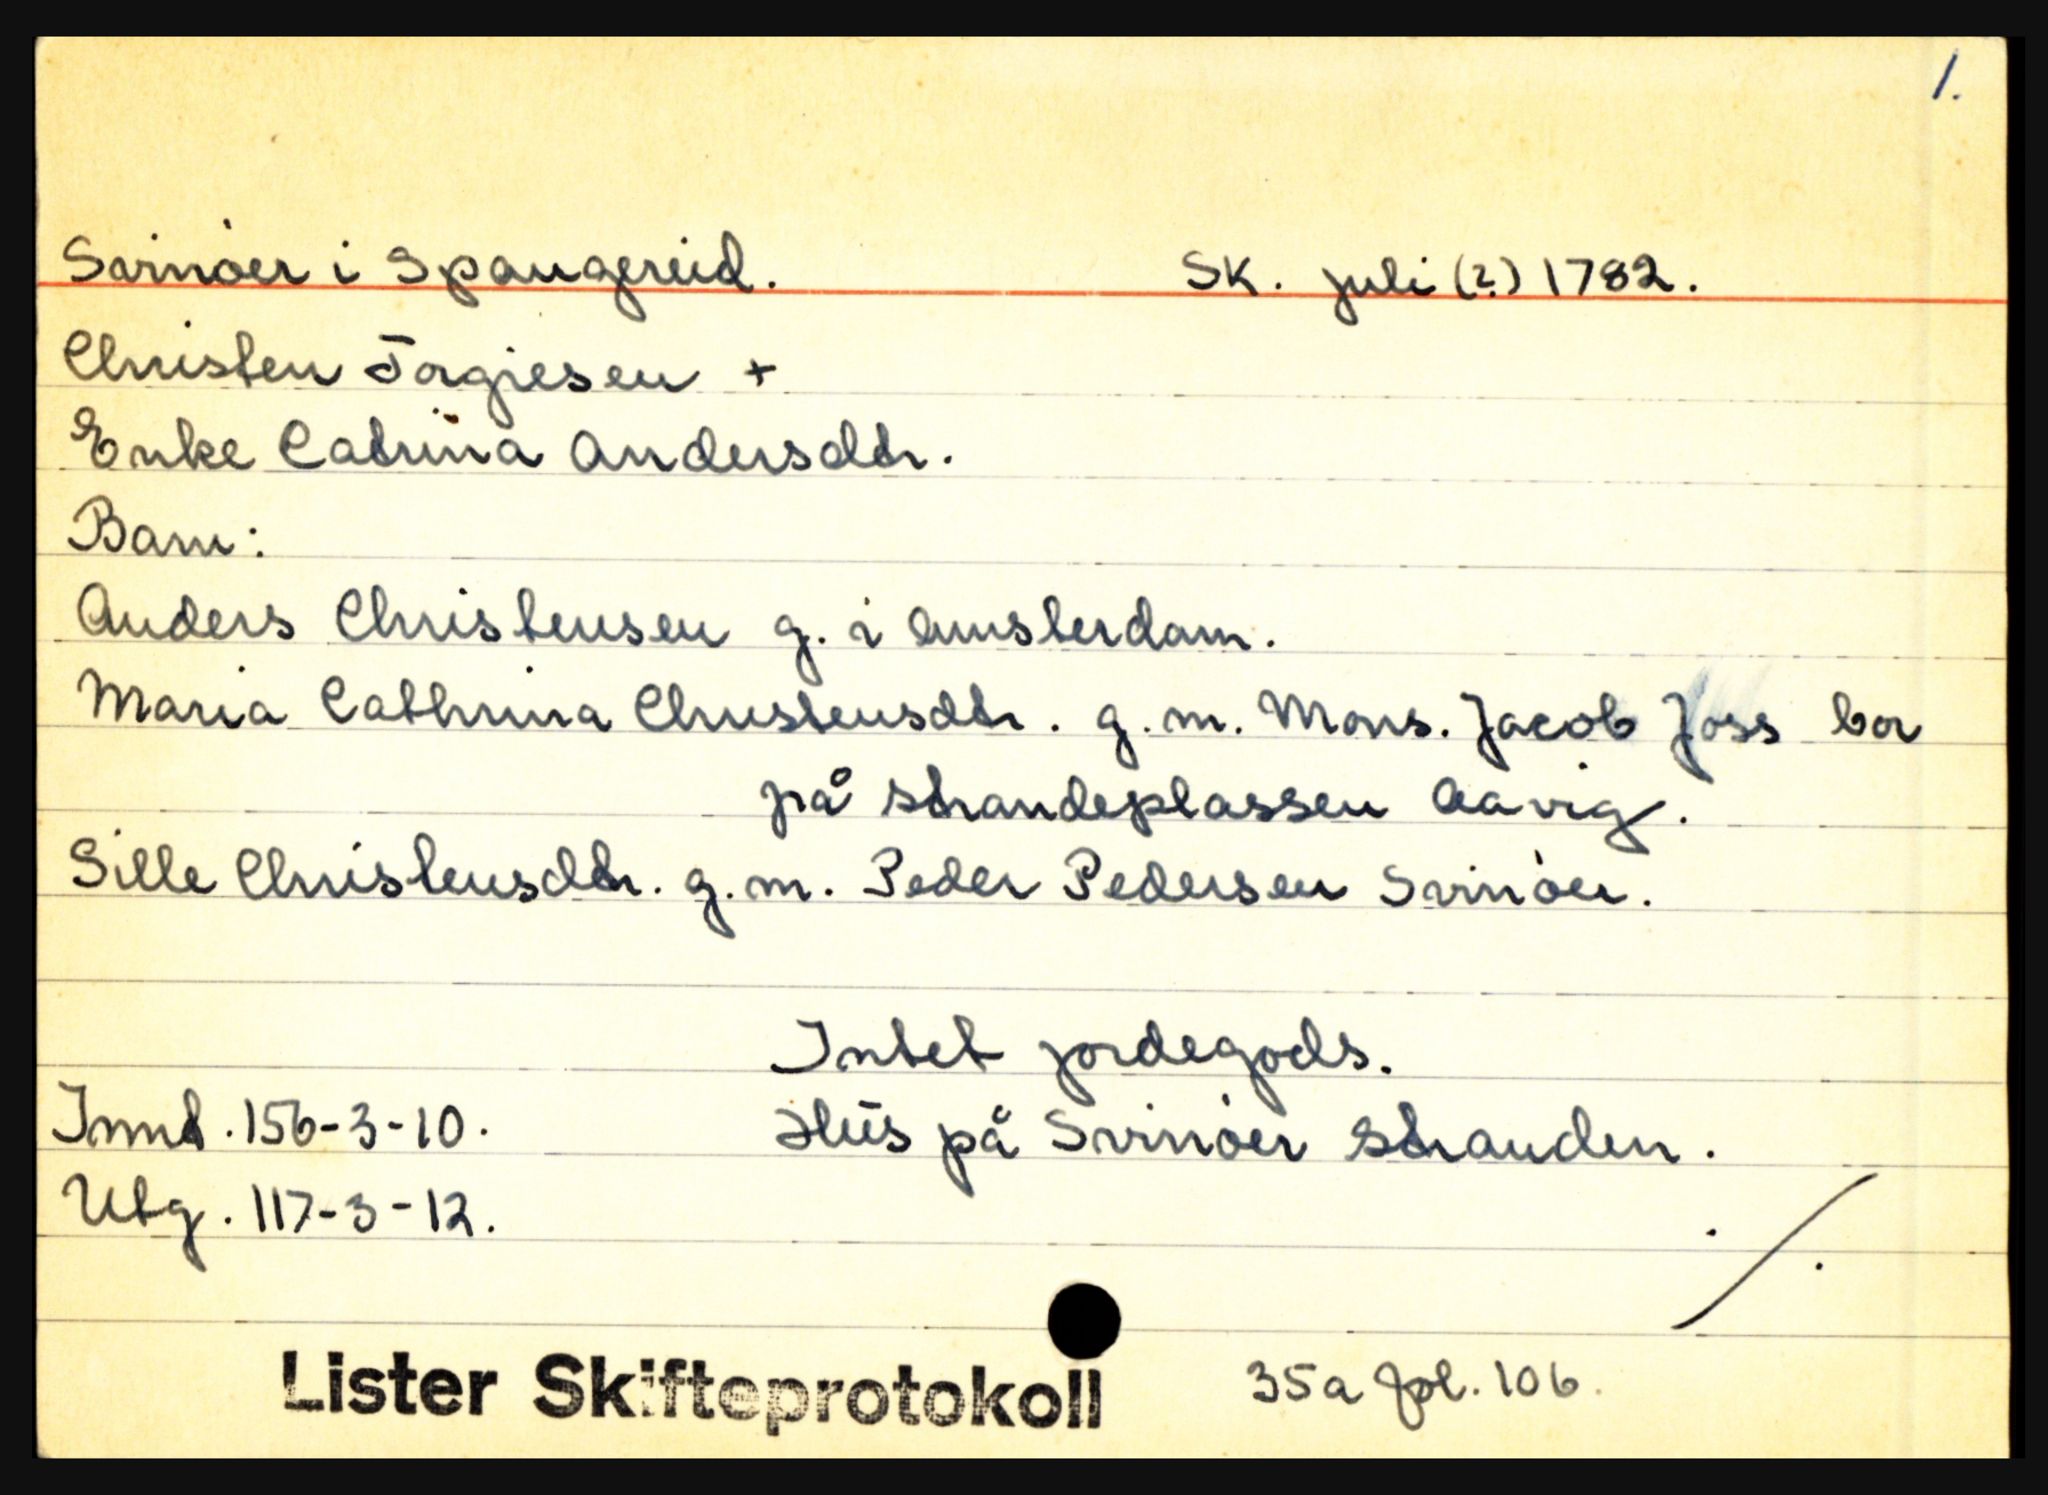 1.
Svinøer i Spangereid. SK. juli (?) 1782.
Christen Torgiesen +
Enke Catrina Andersdtr.
Barn:
Anders Christensen g. i Amsterdam.
Maria Cathrina Christensdtr. g.m. Mons. Jacob Joss bor
på strandeplassen Aavig.
Sille Christensdtr. g.m. Peder Pedersen Svinøer.
Intet jordegods.
Innt. 156-3-10. Hus på Svinøer stranden.
Utg. 117-3-12.
Lister Skifteprotokoll 35a fol. 106.